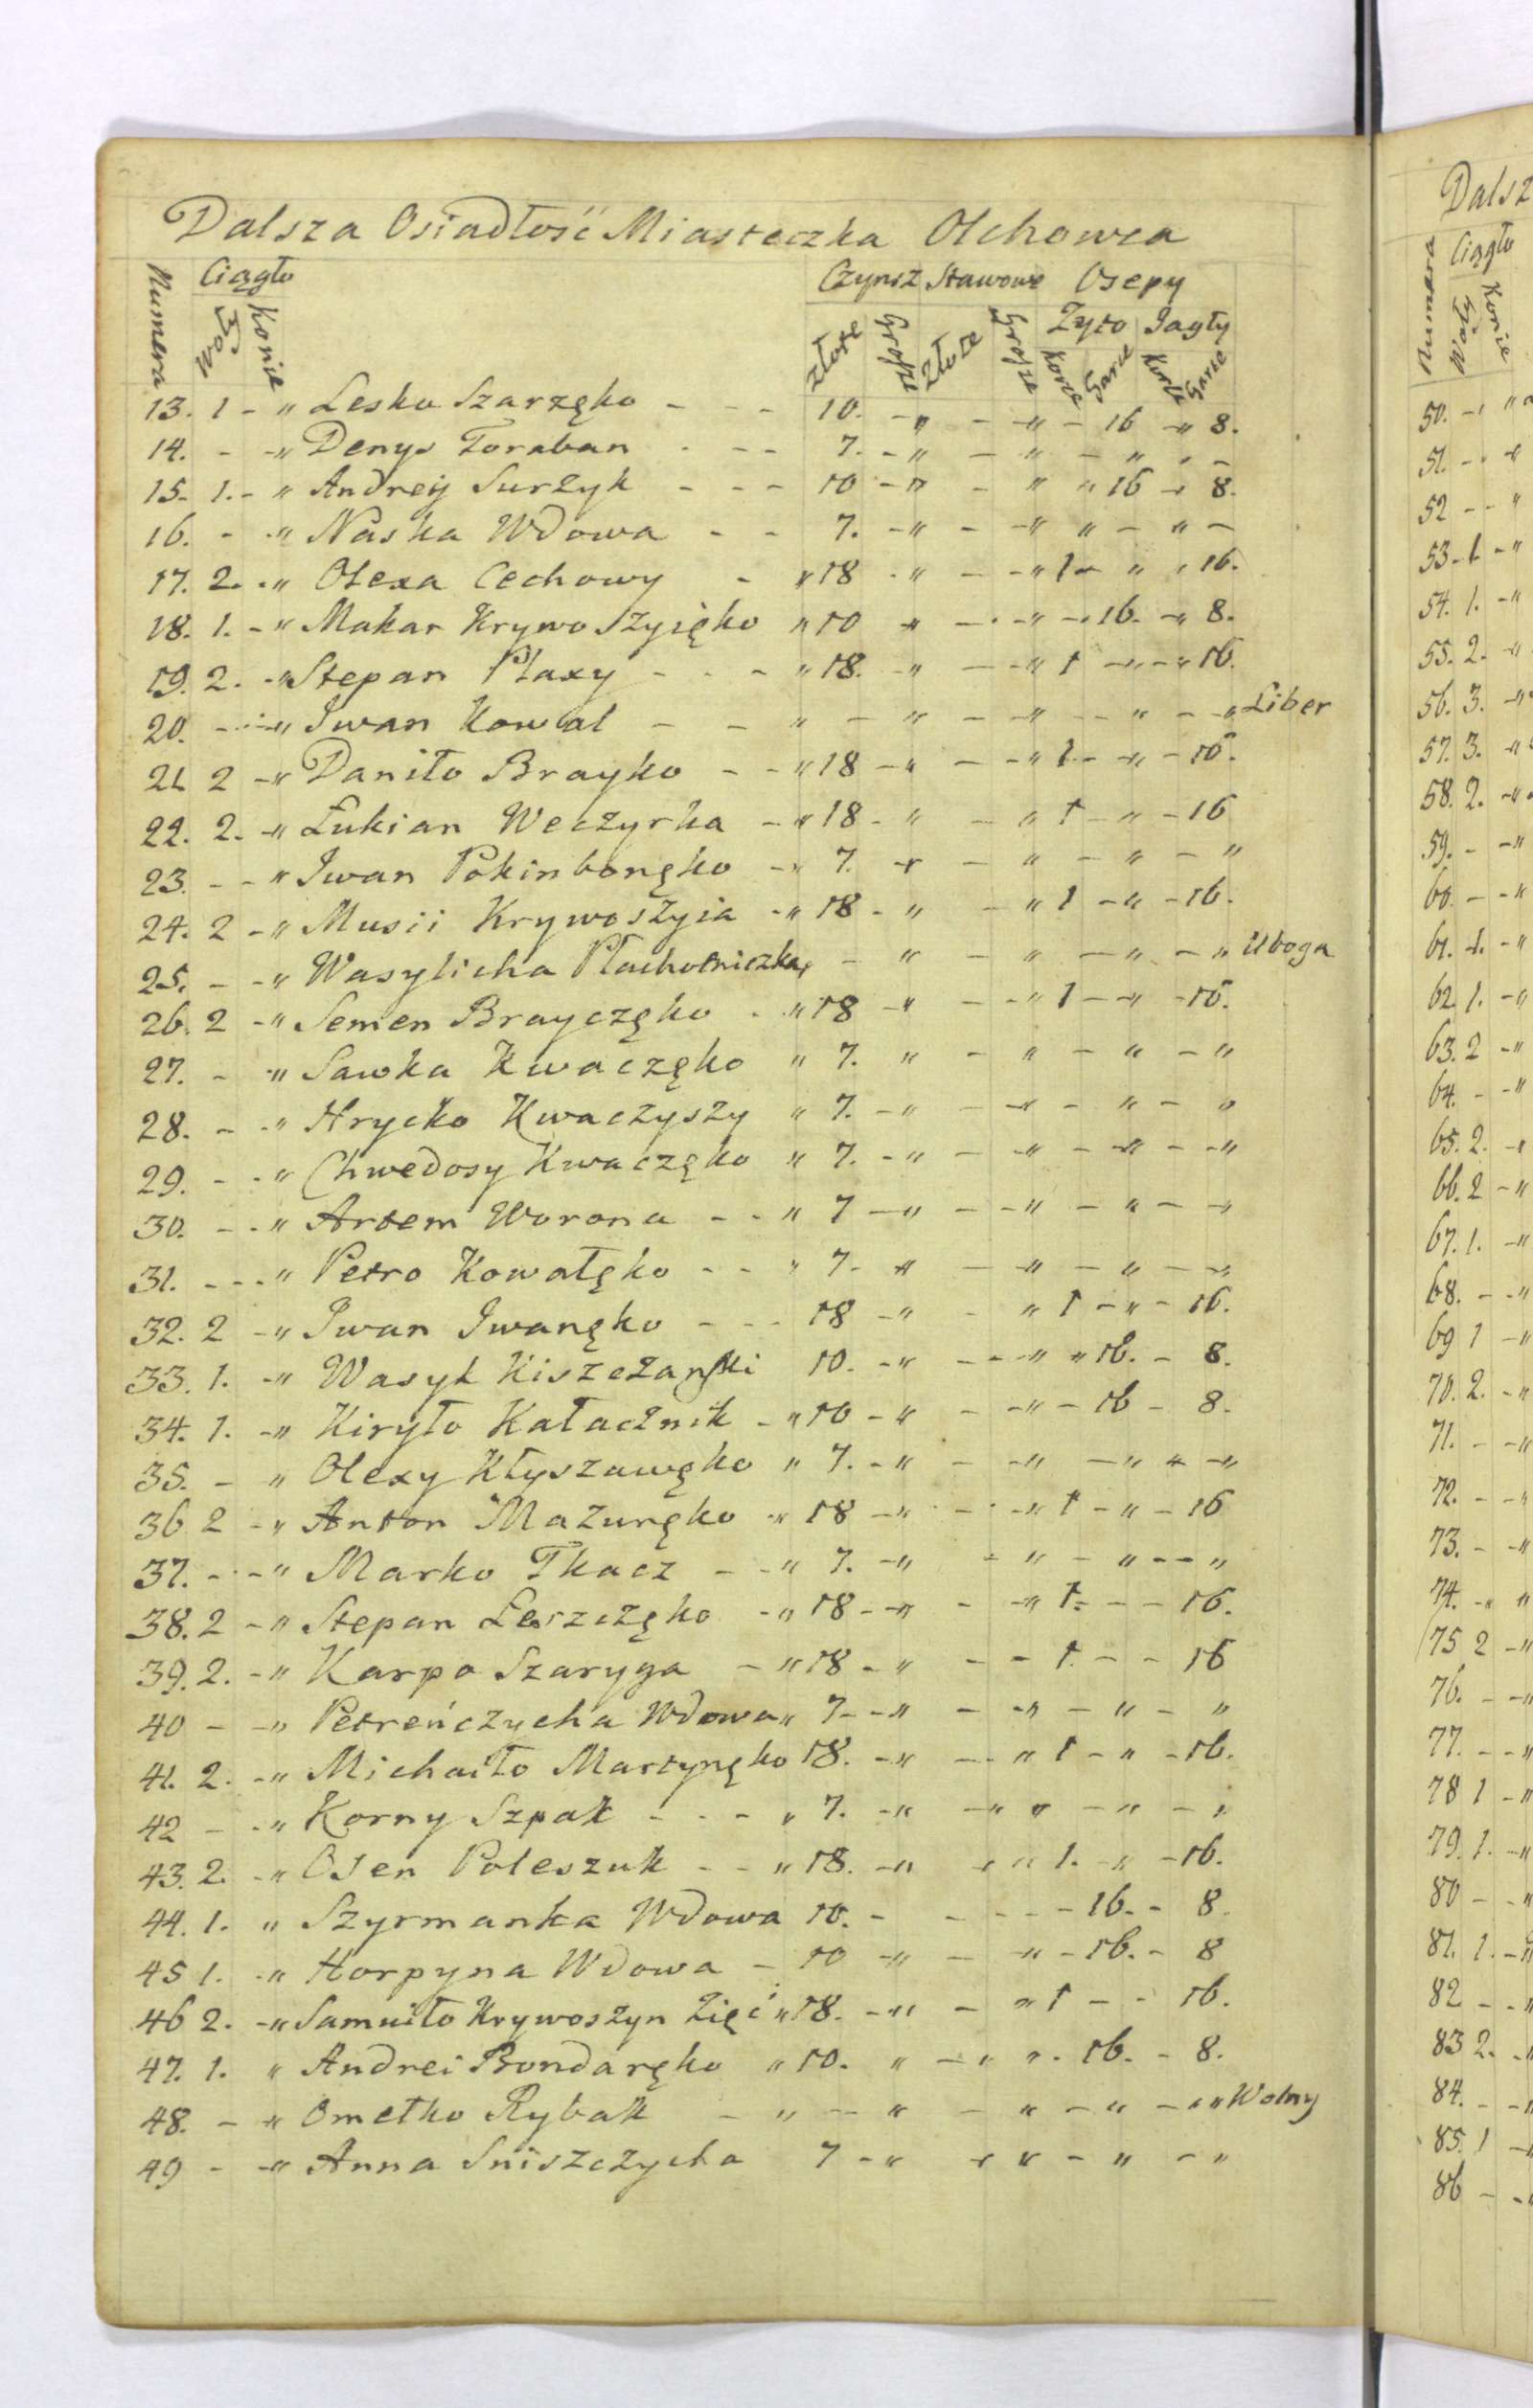 Dalsza Osiadłość Miasteczka Olchowca
Numera Ciągło Woły Konie Czynsz Stawowe Osepy
Złote Grosze Złote Grosze Zyto Jagły
Korce Garce Korce Garce
13. 1 - " Lesko Szarzęko - - - 10. - " - - " - 16 - " 8.
14. - - " Denys Toraban - - - 7. - " - " - " " -
15. 1. - " Andreij Surzyk - - - 10 - " - " " 16 - " 8.
16. - - " Naska Wdowa - - 7. - " - - " " - " -
17. 2. - " Olexa Cechowy - " 18 - " - - " 1 - " " 16.
18. 1. - " Makar Krywoszyięko " 10 " - - " - 16. - " 8.
19. 2. - " Stepan Płaxy - - - " 18. - " - - " 1 - " - " 16.
20. - - " Iwan Kowal - - " - " - - " - - " - - " Liber
21. 2 - " Daniło Brayko - - " 18 - " - - " 1 - - " - 16.
22. 2. - " Łukian Weczyrka - " 18 - " - " 1 - " - 16
23. - - " Iwan Pokinbonęko - " 7. " - " - " - "
24. 2 - " Musii Krywoszyia - " 18 - " - " 1 - " - 16.
25. - - " Wasylicha Płachotniczka - " - " - " - " Uboga
26. 2 - " Semen Brayczęko - " 18 - " - - " 1 - - " - 16.
27. - " Sawka Kwaczęko " 7. " - " - " - "
28. - - " Hrycko Kwaczyszy " 7. - " - - " - " - "
29. - - " Chwedosy Kwaczęko " 7. - " - - " - - " - - "
30. - - " Artem Worona - - " 7 - " - - " - " - - "
31. - - - " Petro Kowałęko - - " 7. " - - " - " - - "
32. 2 - " Iwan Iwanęko - - - 18 - " - " 1 - " - 16.
33. 1. - " Wasyl Kiszeżański 10. - " - - - " " 16. - 8.
34. 1. - " Kiryło Kałacznik - " 10 - " - - " - 16 - 8.
35. - " Olexy Kłyszawęko " 7. - " - - " - " " - "
36 2 - " Anton Mazuręko " 18 - " - - " 1 - " - 16
37. - - - " Marko Tkacz - - " 7. - " - " - " - - "
38. 2 - " Stepan Leszczęko - " 18 - - " - - " 1. - - - 16.
39. 2. - " Karpo Szaryga - " 18 - " - - 1. - - 16
40 - - " Petreńczycha Wdowa " 7 - - " - - " - " - "
41. 2. - " Michaiło Martynęko 18. - " - - " 1 - " - 16.
42 - - " Korny Szpak - - - " 7. - " - " " - " - "
43. 2. - " Osen Poleszuk - - " 18. - " - " " 1. - " - 16.
44. 1. " Szyrmanka Wdowa 10. - - - - - 16. - 8.
45 1. - " Horpyna Wdowa - 10 - " - - " - 16. - 8
46 2. - " Samuiło Krywoszyn Zięć " 18. - " - " 1 - - 16.
47. 1. " Andrei Bondaręko " 10. " - " " - 16. - 8.
48. - " Omelko Rybak - " - " - " - " - " " Wolny
49 - - " Anna Sniszczycha 7 - " - " " - " - "
Dalsz
Numera Ciągło Woły Konie
50. - " "
51. - - "
52 - - "
53. 1. - "
54. 1. - "
55. 2. - "
56. 3. - "
57. 3. - "
58. 2. - "
59. - - "
60. - - "
61. 1. - "
62. 1. - "
63. 2 - "
64. - - "
65. 2. - "
66. 2 - "
67. 1. - "
68. - - "
69 1 - "
70. 2. - "
71. - - "
72. - - "
73. - - "
74. - " "
75 2 - "
76. - - "
77. - - "
78 1 - "
79. 1. - "
80 - - "
81. 1. - "
82 - - "
83 2. - "
84. - - "
85. 1 - "
86 - - "